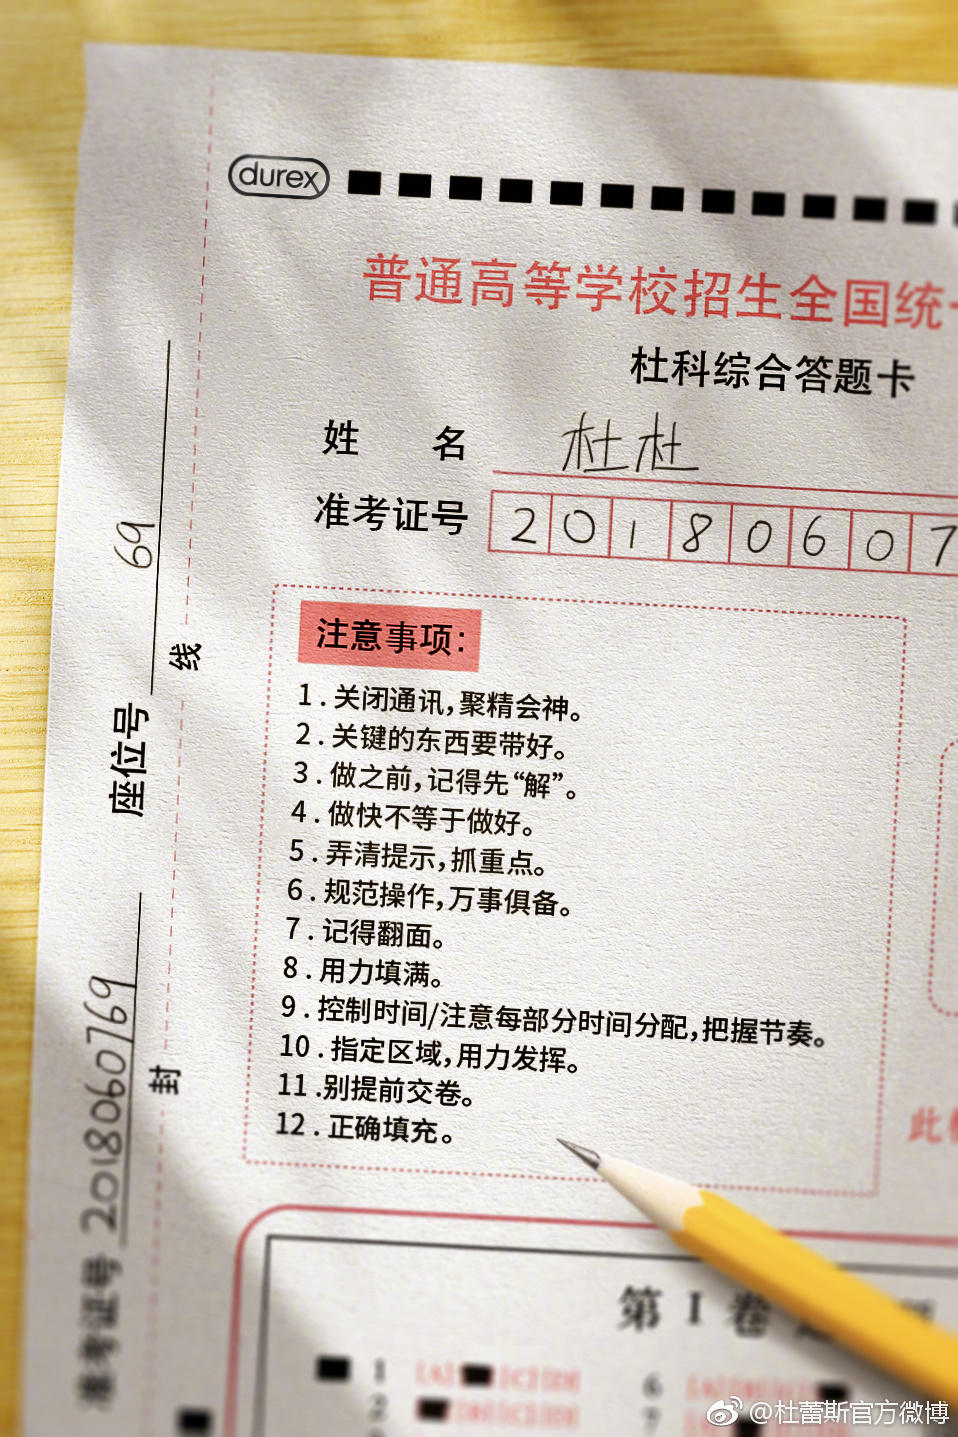 durex
普通高等学校招生全国统一
杜科综合答题卡
姓 名 杜杜
准考证号 20180607
注意事项:
1.关闭通讯,聚精会神。
2.关键的东西要带好。
3.做之前,记得先“解”。
4.做快不等于做好。
5.弄清提示,抓重点。
6.规范操作,万事俱备。
7.记得翻面。
8.用力填满。
9.控制时间/注意每部分时间分配,把握节奏。
10.指定区域,用力发挥。
11.别提前交卷。
12.正确填充。
座位号 69
线
封
准考证号 2018060769
此
第 I 卷
1
2
6
7
@杜蕾斯官方微博